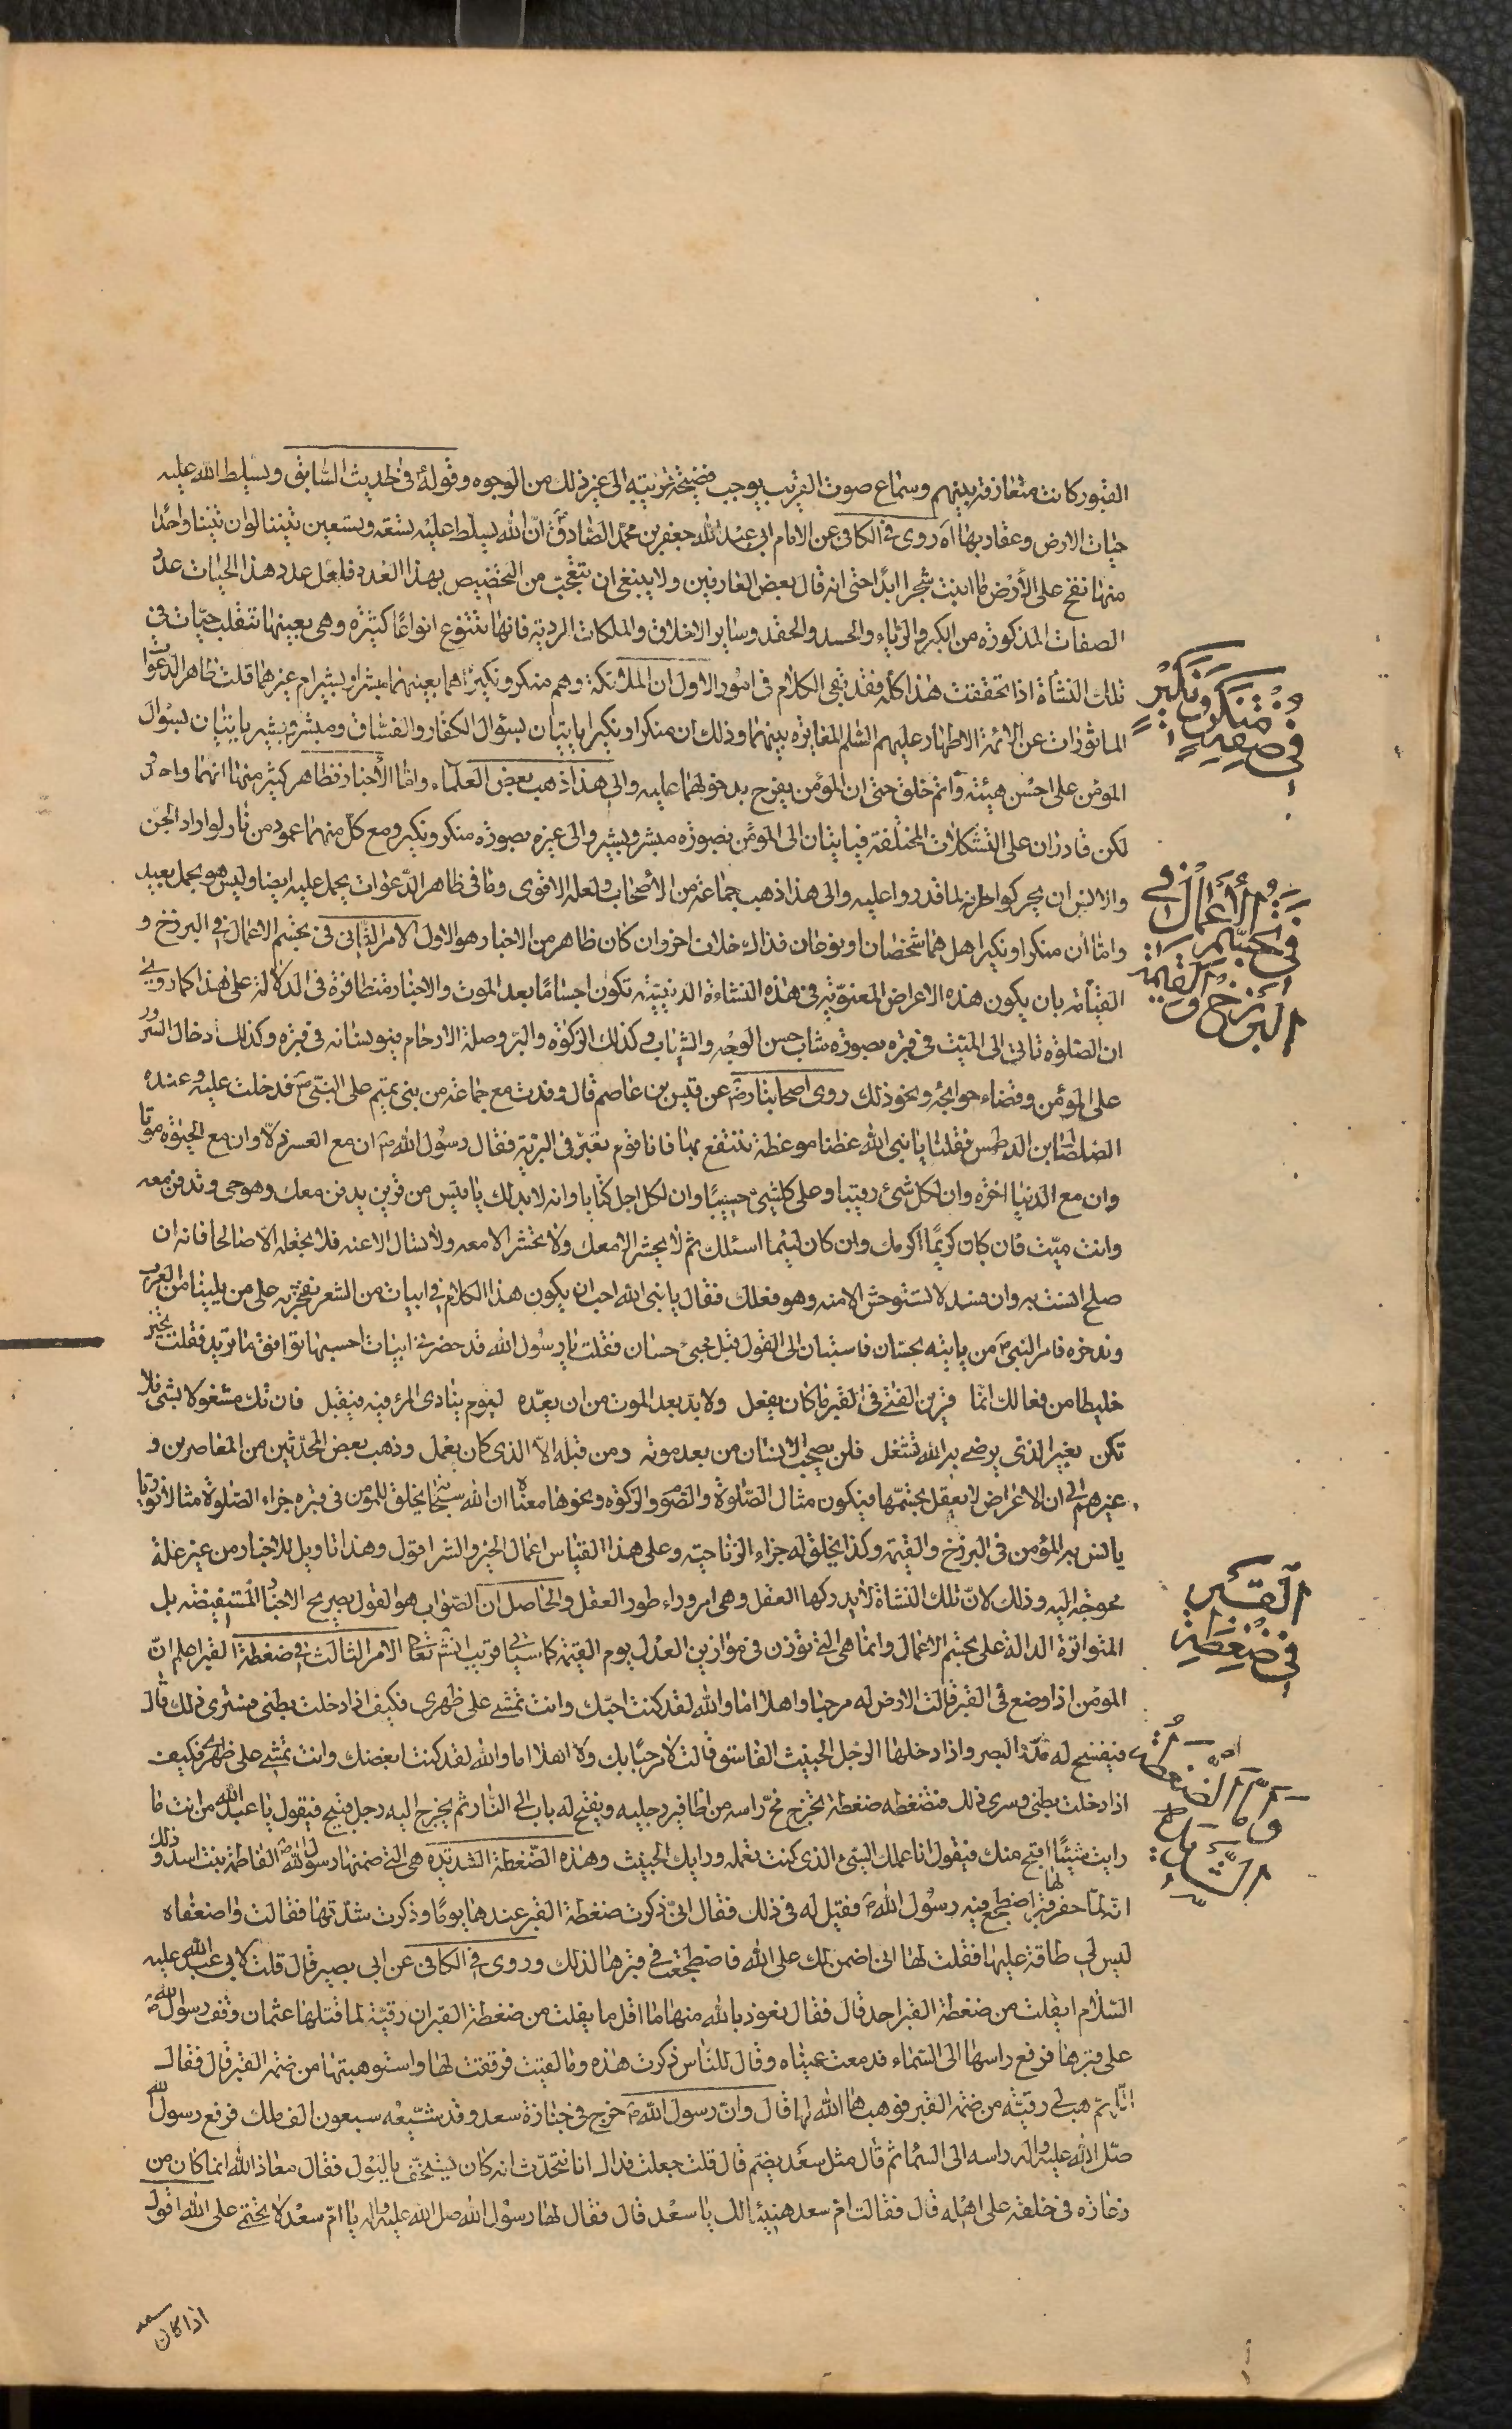 القبور كانت متعارفة بينهم وسماع صوت القريب يوجب فضيحة قريبه الى غير ذلك من الوجوه وقوله في الحديث السابق ويسلط الله عليه
حيات الارض وعقاربها اه روى في الكافي عن الامام ابي عبد الله جعفر بن محمد الصادق انّ الله يسلّط عليه تسعة وتسعين تنينا لو ان تنينا واحدا
منها نفخ على الأرض ما انبتت شجرا ابدا حتى انه قال بعض العارفين ولا ينبغي ان يتعجب من التخصيص بهذا العدد فلعل عدد هذا الحيات عدد
الصفات المذكورة من الكبر والرياء والحسد والحقد وساير الاخلاق والملكات الردية فانها تتنوع انواعًا كثيرة وهي بعينها تنقلب حيّات في
تلك النشأة اذا تحققت هذا كله فقد بقي الكلام في امور الاول ان الملائكة وهم منكر ونكير هما بعينهما مبشر وبشير ام غيرهما قلت ظاهر الدعوات
الماثورات عن الائمة الاطهار عليهم السلم المغايرة بينهما وذلك ان منكرا ونكيرا ياتيان لسؤال الكفار والفسّاق ومبشر وبشير ياتيان لسؤال
المؤمن على احسن هيئة واتم خلق حتى ان المؤمن يفرح بدخولهما عليه والى هذا ذهب بعض العلماء وامّا الأخبار فظاهر كثير منها انهما واحد
لكن قادران على التشكلات المختلفة فياتيان الى المؤمن بصورة مبشر وبشير والى غيره بصورة منكر ونكير ومع كلّ منهما عمود من نار لو اراد الجن
والانس ان يحركوا طرفه لما قدروا عليه والى هذا ذهب جماعة من الأصحاب ولعله الاقوى وما في ظاهر الدّعوات يحمل عليه ايضا وليس هو بحمل بعيد
وامّا ان منكرا ونكيرا هل هما شخصان او نوعان فذاك خلاف اخر وان كان ظاهر من الاخبار هو الاول الامر الثاني في تجسّم الاعمال في البرزخ و
القيامة بان يكون هذه الاعراض المعنوّية في هذه النشاءة الدنييّة تكون اجسامًا بعد الموت والاخبار متظافرة في الدلالة على هذا كما روي
ان الصّلوة تاتي الى الميّت في قبره بصورة شاب حسن الوجه والثياب وكذلك الزكوة والبرّ وصلة الارحام فيؤنسانه في قبره وكذلك ادخال السرور
على المؤمن وقضاء حوائجه ونحو ذلك روى اصحابنا رض عن قيس بن عاصم قال وفدت مع جماعة من بني تميم على النبّي ص فدخلت عليه وعنده
الصلصال بن الدلهمس فقلت يا نبي الله عظنا موعظة ننتفع بها فانا قوم نعبّر في البرّية فقال رسول الله ص ان مع العسر ذلّا وان مع الحيوة موتا
وان مع الدنيا اخرة وان لكل شئ رقيبا وعلى كل شئ حسيبًا وان لكل اجل كتابا وانه لا بد لك يا قيس من قرين يدفن معك وهو حي وتدفن معه
وانت ميّت فان كان كريمًا اكرمك وان كان لئيما اسئلك ثم لا يحشر الا معك ولا تحشر الا معه ولا تسال الا عنه فلا تجعله الاّ صالحا فانه ان
صلح انست به وان فسد لا تستوحش الا منه وهو فعلك فقال يا نبي الله احب ان يكون هذا الكلام في ابيات من الشعر نفخر به على من يلينا من العرب
وندخره فامر النبي ص من ياتيه بحسّان فاستبان الى القول قبل مجئ حسان فقلت يا رسول الله قد حضرني ابيات احسبها توافق ما تريد فقلت تخير
خليطا من فعالك انما قرين الفتى في القبر ما كان يفعل ولا بدّ بعد الموت من ان يعدّه ليوم ينادى المرء فيه فيقبل فان تك مشغولا بشئ فلا
تكن بغير الذي يرضى به الله تشتغل فلن يصحب الانسان من بعد موته ومن قبله الاّ الذي كان يعمل وذهب بعض المحدّثين من المعاصرين و
غيرهم الى ان الاعراض لا يعقل تجسّمها فيكون مثال الصّلوة والصّوم والزكوة ونحوها معناه ان الله سبحانه يخلق للمؤمن في قبره جزاء الصّلوة مثالا نورانيا
يانس به المؤمن في البرزخ والقيمة وكذا يخلق له جزاء الزنا حيّة وعلى هذا القياس اعمال الخير والشر اقول وهذا تاويل للاخبار من غير علة
محوجة اليه وذلك لانّ تلك النشاة لا يدركها العقل وهي امر وراء طور العقل والحاصل ان الصّواب هو القول بصريح الاخبار المستفيضة بل
المتواترة الدالة على تجسّم الاعمال وانما هي التي توزن في موازين العدل يوم القيمة كما سياتي قريب انشاء تعالى الامر الثالث في ضغطة القبر اعلم انّ
المؤمن اذا وضع في القبر قالت الارض له مرحبا واهلا اما والله لقد كنت احبّك وانت تمشي على ظهري فكيف اذا دخلت بطني فسترى ذلك قال
فيفسح له مدّ البصر واذا دخلها الرجل الخبيث الفاسق قالت لا مرحبًا بك ولا اهلا اما والله لقد كنت ابغضك وانت تمشي على ظهري فكيف
اذا دخلت بطني وسترى ذلك فتضغطه ضغطة تخرج مخّ راسه من اظافير رجليه ويفتح له باب الى النّار ثم يخرج اليه رجل قبيح فيقول يا عبد الله من انت ما
رايت شيئًا اقبح منك فيقول انا عملك السيئ الذي كنت تعمله ورايك الخبيث وهذه الضّغطة الشديدة هي التي ضمنها رسول الله ص لفاطمة بنت اسد وذلك
انّه لمّا حفر لها قبر اضطجع فيه رسول الله ص فقيل له في ذلك فقال انّي ذكرت ضغطة القبر عندها يومًا وذكرت شدّتها فقالت واضعفاه
ليس لي طاقة عليها فقلت لها اني اضمن لك على الله فاضطجعت في قبرها لذلك وروى في الكافي عن ابي بصير قال قلت لابي عبد الله عليه
السّلام ايفلت من ضغطة القبر احد قال فقال نعوذ بالله منها ما اقل ما يفلت من ضغطة القبر ان رقيّة لما قتلها عثمان وقف رسول الله ص
على قبرها فرفع راسها الى السّماء فدمعت عيناه وقال للنّاس ذكرت هذه وما لقيت فرققت لها واستوهبتها من ضمّة القبر قال فقال
اللّهم هب لي رقيّة من ضمّة القبر فوهبها الله لها قال وانّ رسول الله ص خرج في جنازة سعد وقد شيّعه سبعون الف ملك فرفع رسول الله
صلّى الله عليه واله راسه الى السّماء ثم قال مثل سعد يضمّ قال قلت جعلت فداك انا نتحدّث انه كان يستخفّ بالبول فقال معاذ الله انما كان من
زعارة في خلقه على اهله قال فقالت امّ سعد هنيئا لك يا سعد قال فقال لها رسول الله صلى الله عليه واله يا امّ سعد لا تحتمي على الله اقول
اذا كان سعد
في صفة
منكر ونكير
في تجسّم الأعمال في
البرزخ والقيمة
في ضغطة
القبر
وامّا الضّغطة